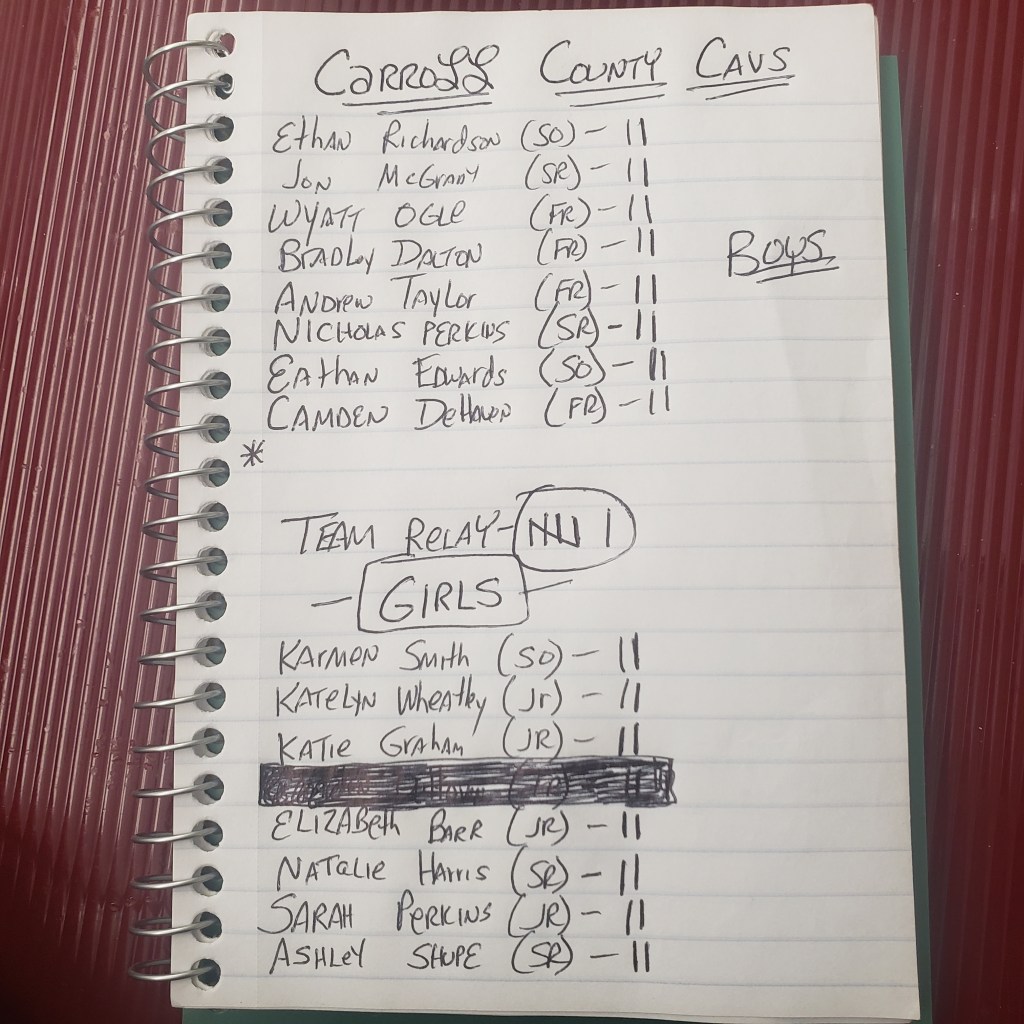 CARROLL COUNTY CAVS
Ethan Richardson (SO) - ||
Jon McGrady (SR) - ||
Wyatt Ogle (FR) - ||
Bradley Dalton (FR) - ||
Boys
Andrew Taylor (FR) - ||
Nicholas Perkins (SR) - ||
Eathan Edwards (SO) - ||
Camden DeHaven (FR) - ||
*
Team Relay - 𝍸 |
- GIRLS -
Karmen Smith (SO) - ||
Katelyn Wheatley (Jr) - ||
Katie Graham (JR) - ||
Elizabeth Barr (JR) - ||
Natalie Harris (SR) - ||
Sarah Perkins (JR) - ||
Ashley Shupe (SR) - ||